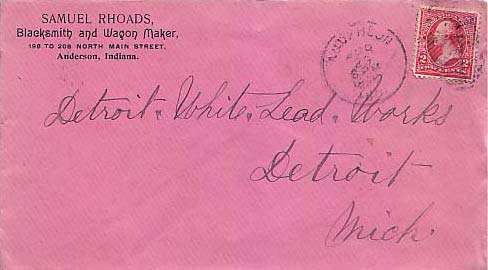 SAMUEL RHOADS,
Blacksmith and Wagon Maker,
198 TO 208 NORTH MAIN STREET,
Anderson, Indiana.
2 2
TWO CENTS
Detroit White Lead Works
Detroit
Mich.